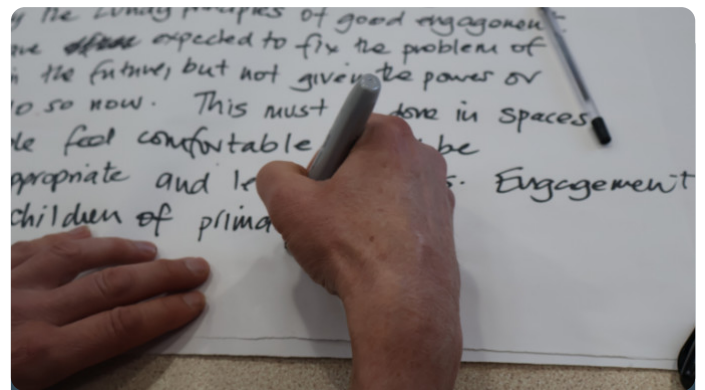 the Lundy principles of good engagemen
expected to fix the problem of
the future, but not given the power or
so now. This must done in spaces
feel comfortable be
ppropriate and le s. Engagement
children of prima